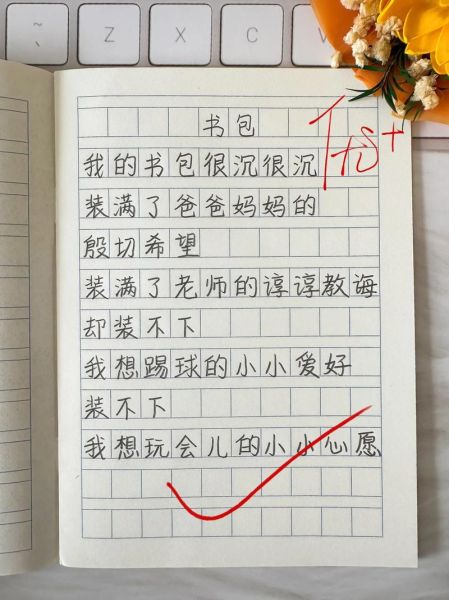 ~
Z
X
C
V
书包
优+
我的书包很沉很沉
装满了爸爸妈妈的
殷切希望
装满了老师的谆谆教诲
却装不下
我想踢球的小小爱好
装不下
我想玩会儿的小小心愿